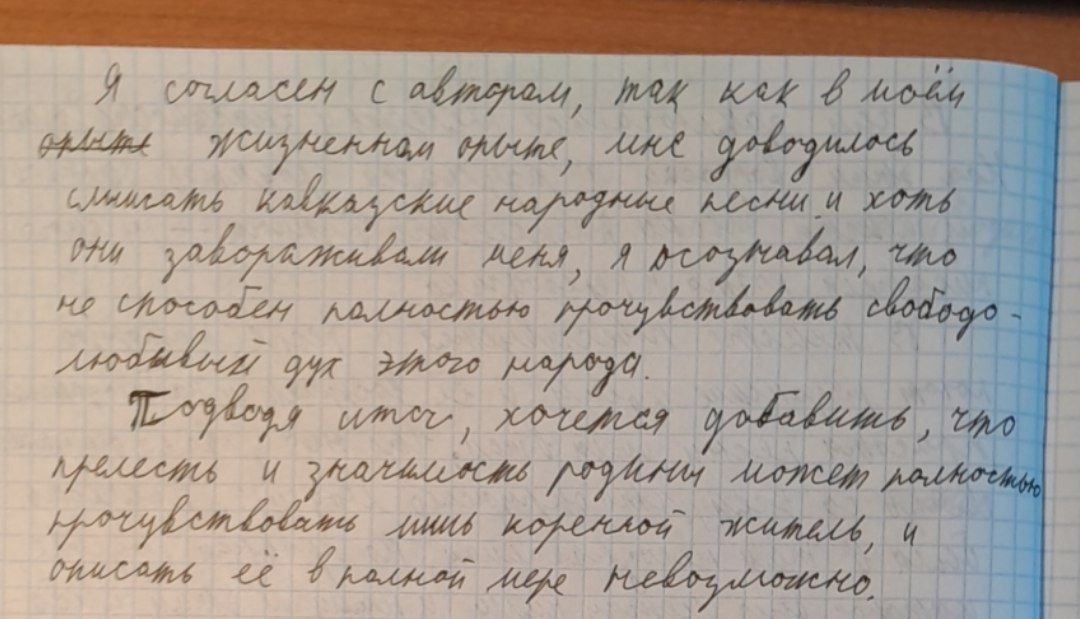 Я согласен с автором, так как в моём
опыте жизненном опыте, мне доводилось
слышать кавказские народные песни и хоть
они завораживали меня, я осознавал, что
не способен полностью прочувствовать свободо-
любивый дух этого народа.
Подводя итог, хочется добавить, что
прелесть и значимость родины может полностью
прочувствовать лишь коренной житель, и
описать её в полной мере невозможно.